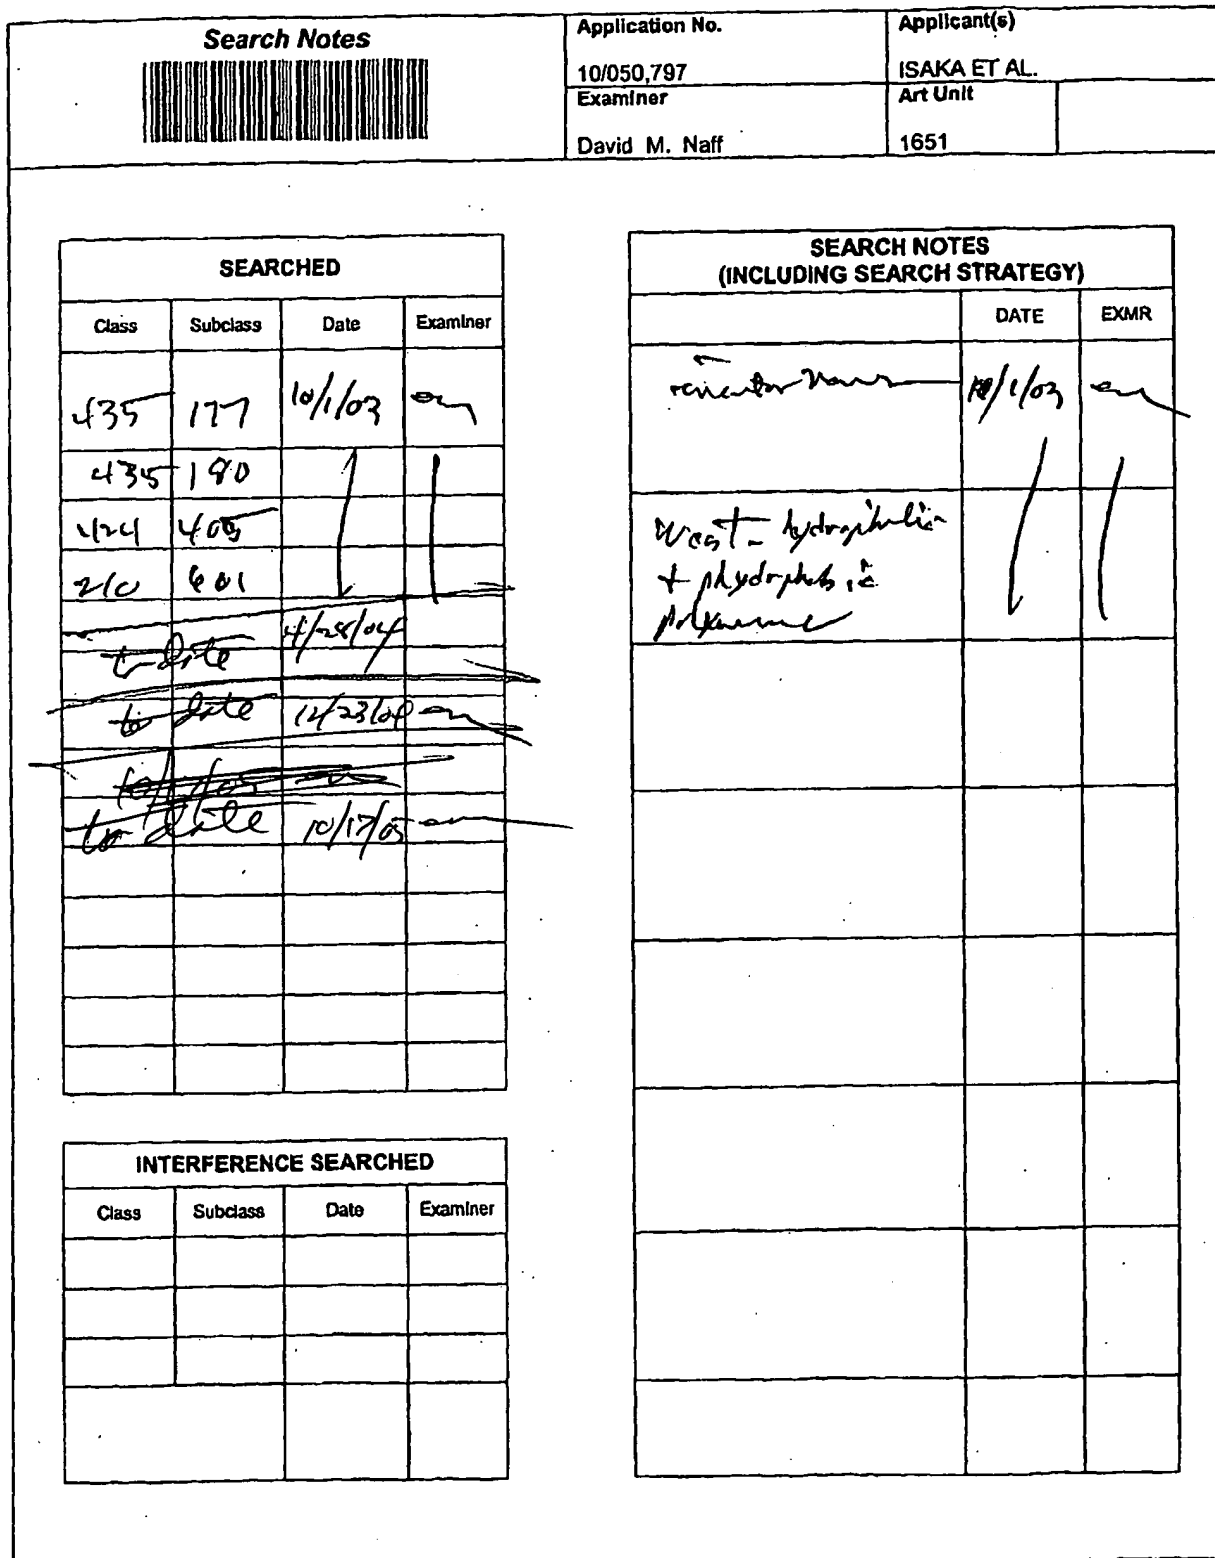 Search Notes
Application No.
Applicant(s)
10/050,797
ISAKA ET AL.
Examiner
Art Unit
David M. Naff
1651
SEARCHED
Class Subclass Date Examiner
435 177 10/1/03
435 180
424 405
210 601
to date 4/28/04
to date 12/23/04
to date 10/17/05
INTERFERENCE SEARCHED
Class Subclass Date Examiner
SEARCH NOTES
(INCLUDING SEARCH STRATEGY)
DATE EXMR
10/1/03
West - hydrophilic
+